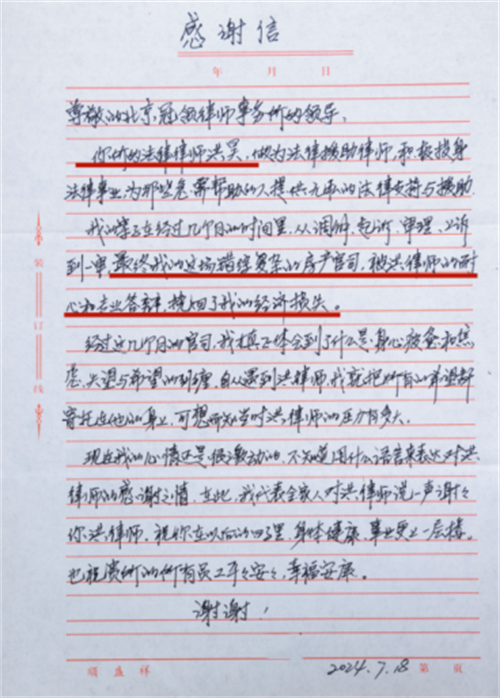 感谢信
年 月 日
尊敬的北京冠领律师事务所的领导:
你们的法律律师洪昊,做为法律援助律师,积极投身
法律事业,为那些急需帮助的人提供无私的法律支持与援助.
我的案子在经过几个月的时间里,从调解、起诉、审理、上诉
到一审,最终我的这场错综复杂的房产官司,被洪律师的耐
心和专业答辩,挽回了我的经济损失。
经过这几个月的官司,我真正体会到了什么是身心疲惫和焦
虑、失望与希望的纠缠,自从遇到洪律师,我就把所有的希望都
寄托在他的身上,可想而知当时洪律师的压力有多大。
现在我的心情还是很激动的,不知道用什么语言来表达对洪
律师的感谢之情,在此,我代表全家人对洪律师说一声谢谢
你洪律师,祝你在以后的日子里,身体健康,事业更上一层楼。
也祝贵所的所有员工平平安安,幸福安康。
谢谢!
装订线
顺盛祥 2024.7.18 第 页